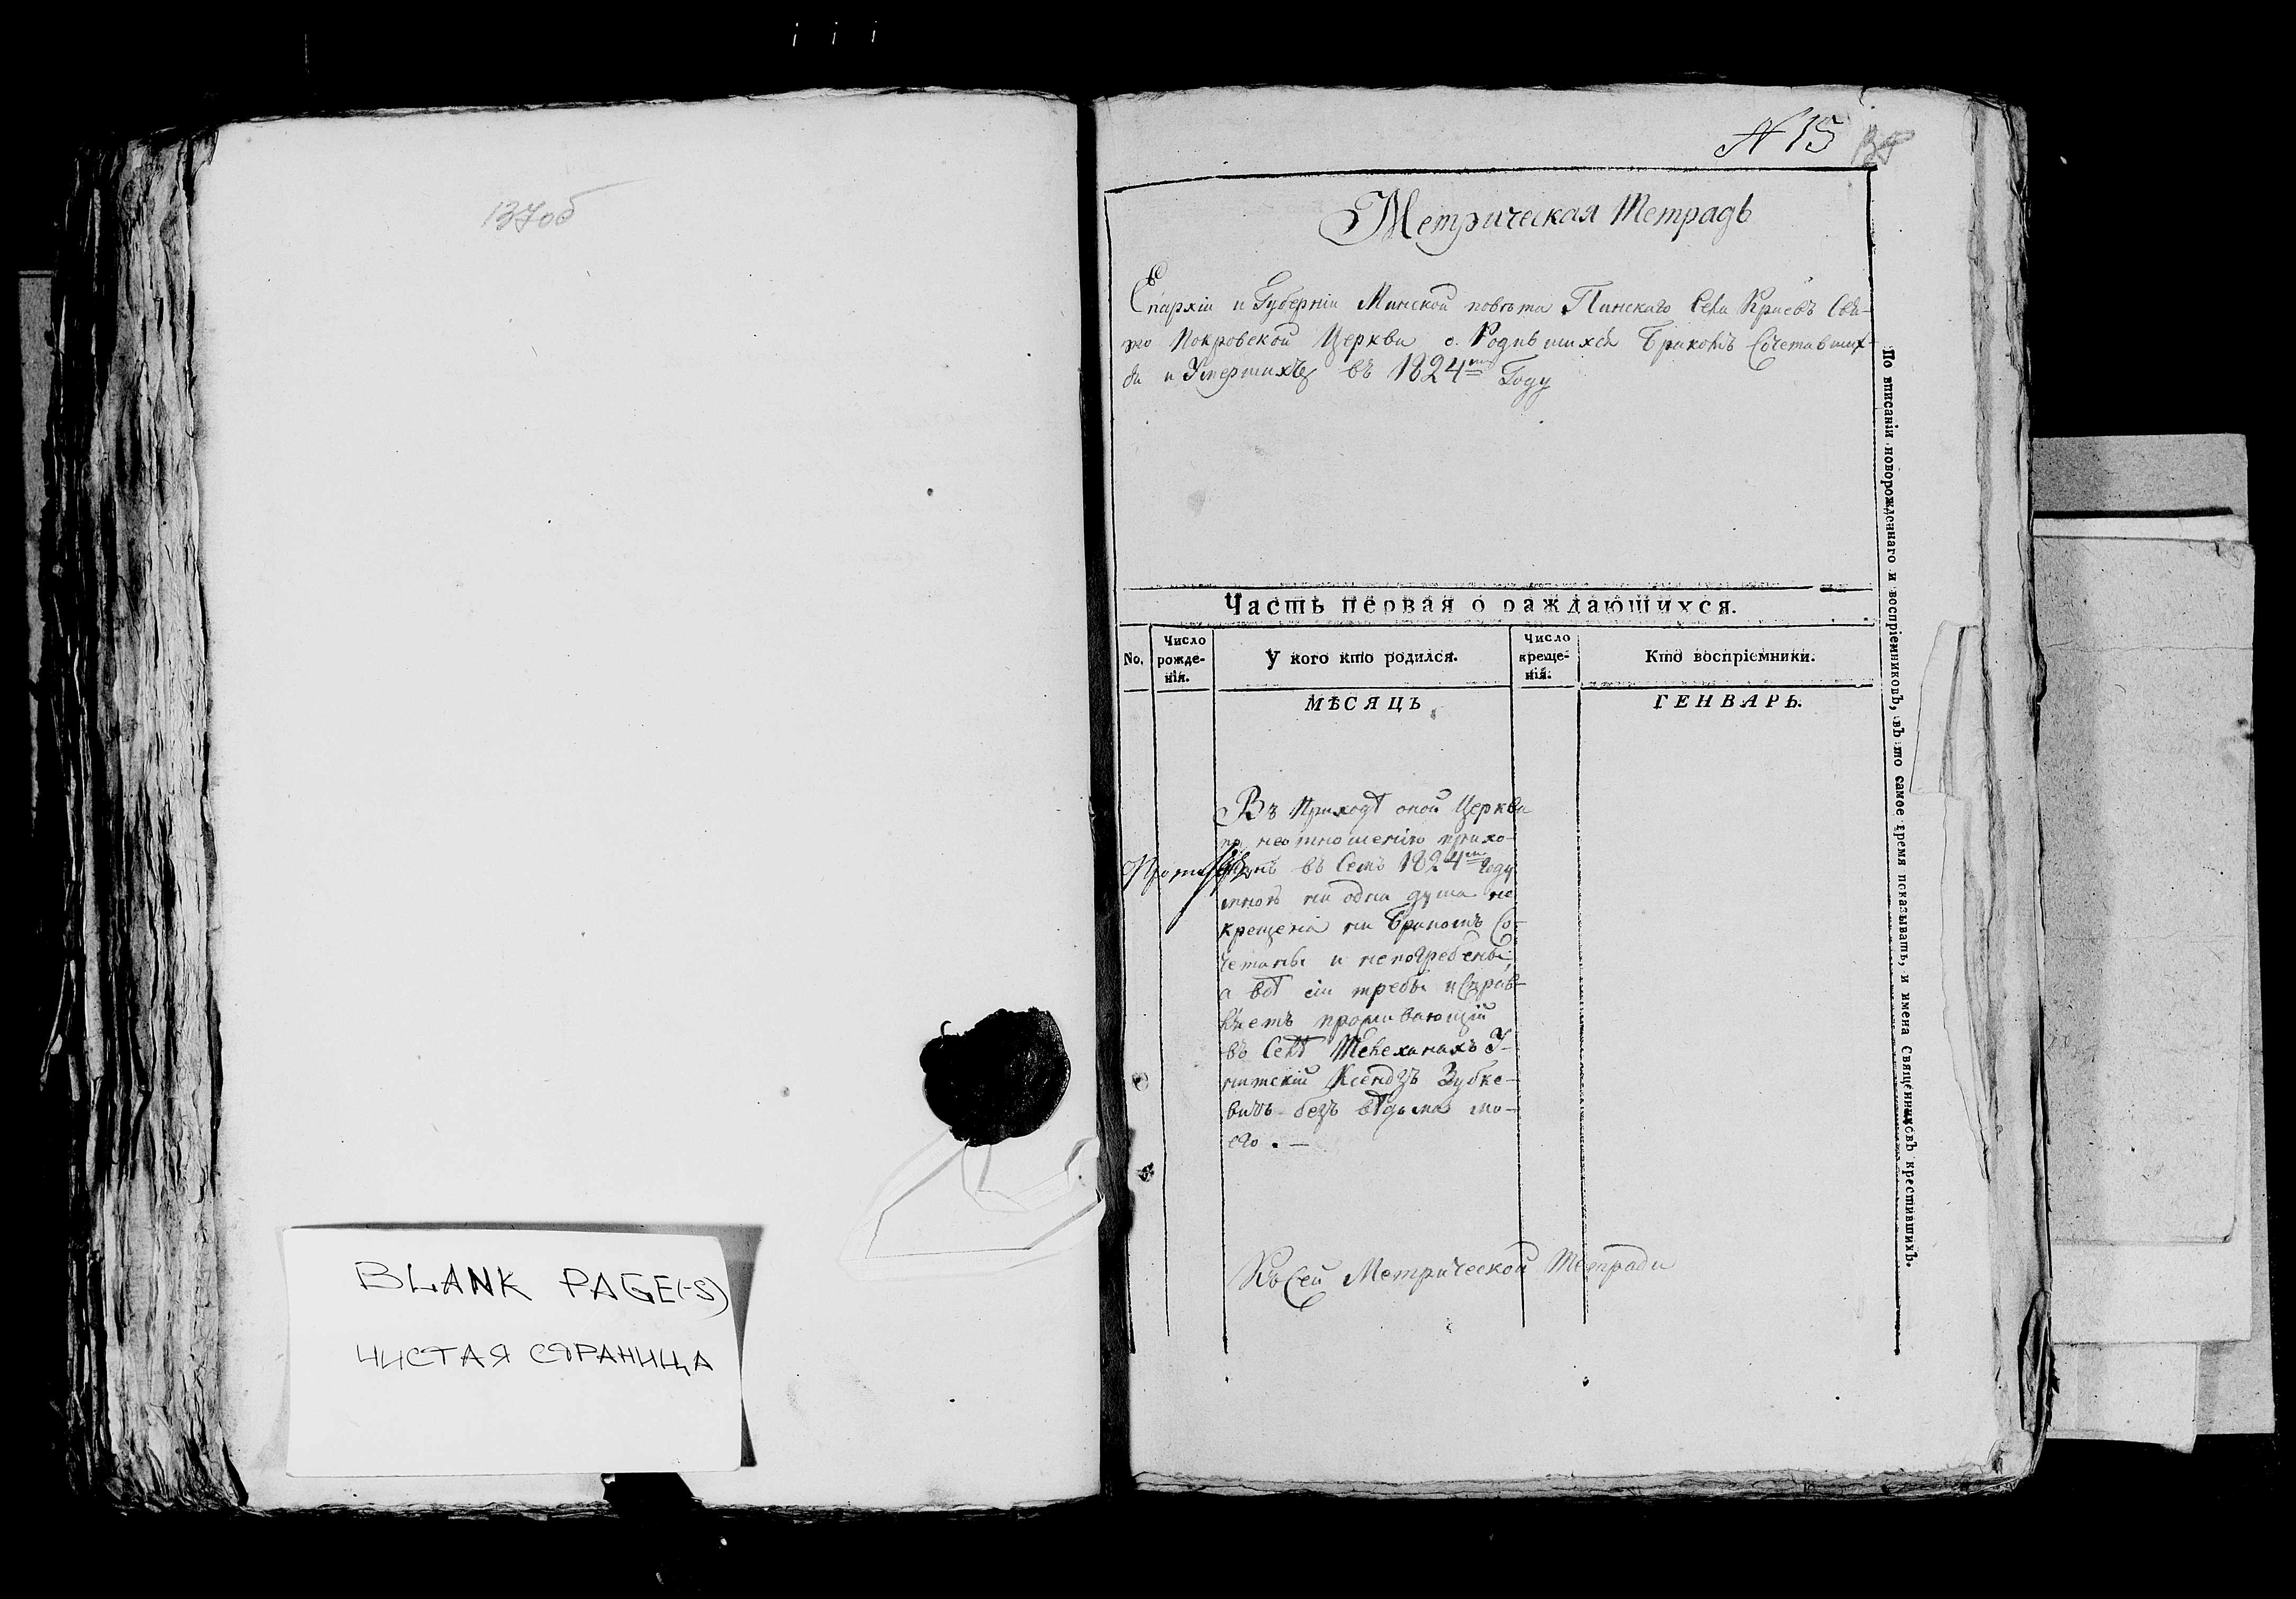 137об
BLANK PAGE(-S)
ЧИСТАЯ СТРАНИЦА
N 15
Метрическая Тетрадь
Епархіи и Губерніи Минской повѣта Пинскаго Села Краевъ Свя-
то Покровской Церкви о Родившихся Бракомъ Сочетавших-
ся и Умершихъ въ 1824мъ Году
Часть первая о раждающихся.
No.
Число рожде-нія.
У кого кто родился.
Число креще-нія.
Кто воспріемники.
МѢСЯЦЪ
ГЕНВАРЬ.
Въ Приходѣ оной Церкви
по неотношенію прихо-
жанъ въ Семъ 1824мъ Году
мною ни одна душа не
крещена ни Бракомъ Со-
четаны и непогребены,
а всѣ сіи требы исправ-
ляетъ проживающій
въ Селѣ Телеханахъ У-
нитскій Ксендзъ Зубке-
вичь безъ вѣдома мо-
его. —
Къ Сей Метрической Тетради
По вписаніи новорожденнаго и воспріемниковъ, въ то самое время показывать, и имена Священниковъ крестившихъ.